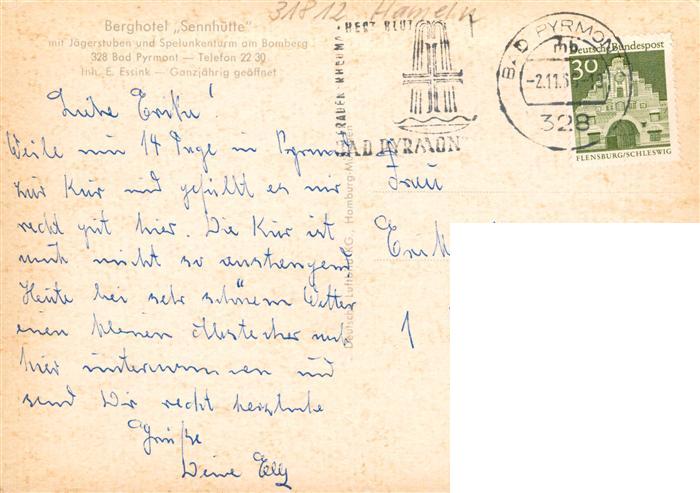 Berghotel „Sennhütte"
mit Jägerstuben und Spelunkenturm am Bomberg
328 Bad Pyrmont — Telefon 22 30
Inh. E. Essink — Ganzjährig geöffnet
31812 Hameln
HERZ BLUT
FRAUEN RHEUMA
BAD PYRMONT
BAD PYRMONT
mb
-2.11.6
328
Deutsche Bundespost
30
FLENSBURG/SCHLESWIG
Deutsche Luftbild AG. Hamburg
Liebe Erika!
Weile nun 14 Tage in Pyrmont
zur Kur und gefällt es mir
recht gut hier. Die Kur ist
auch nicht so anstrengend
Heute bei sehr schönem Wetter
einen kleinen Abstecher nach
hier unternommen und
send Dir recht herzliche
Grüße
Deine Elly
Frau
1